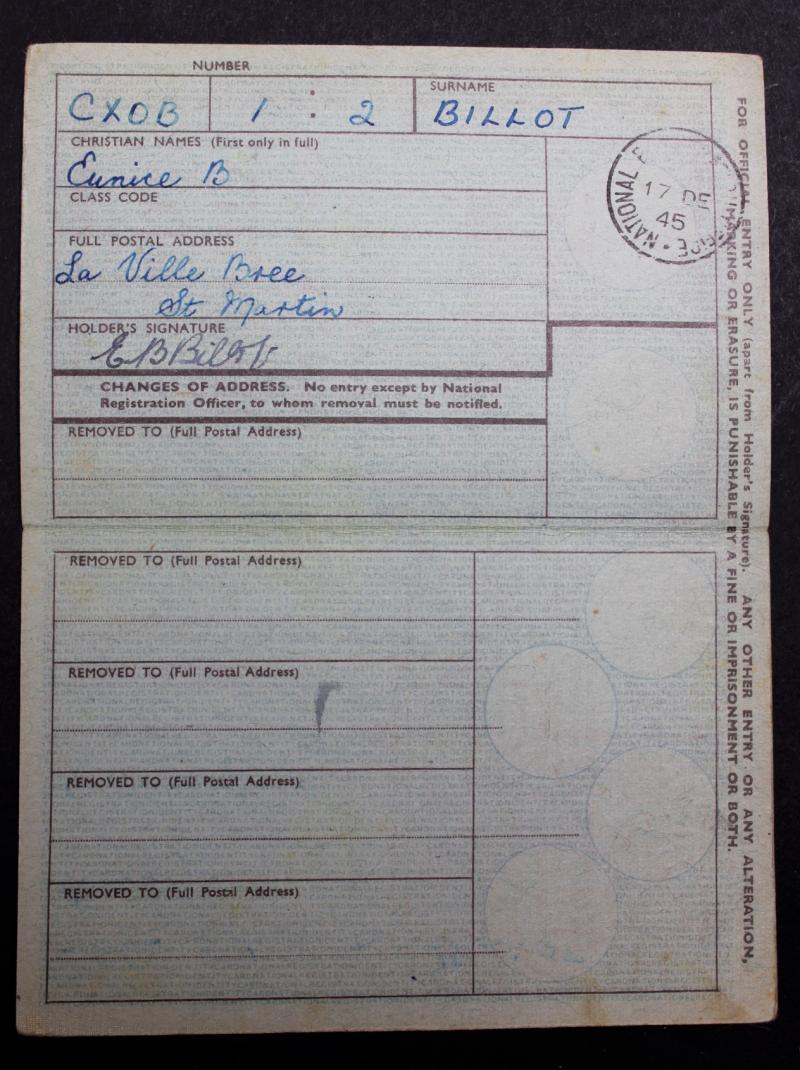 NUMBER
CXOB 1 : 2
SURNAME
BILLOT
CHRISTIAN NAMES (First only in full)
Eunice B
CLASS CODE
FULL POSTAL ADDRESS
La Ville Bree
St Martin
HOLDER'S SIGNATURE
E B Billot
CHANGES OF ADDRESS. No entry except by National
Registration Officer, to whom removal must be notified.
REMOVED TO (Full Postal Address)
REMOVED TO (Full Postal Address)
REMOVED TO (Full Postal Address)
REMOVED TO (Full Postal Address)
REMOVED TO (Full Postal Address)
NATIONAL
17 DE
45
FOR OFFICIAL ENTRY ONLY (apart from Holder's Signature). ANY OTHER ENTRY OR ANY ALTERATION,
MARKING OR ERASURE, IS PUNISHABLE BY A FINE OR IMPRISONMENT OR BOTH.